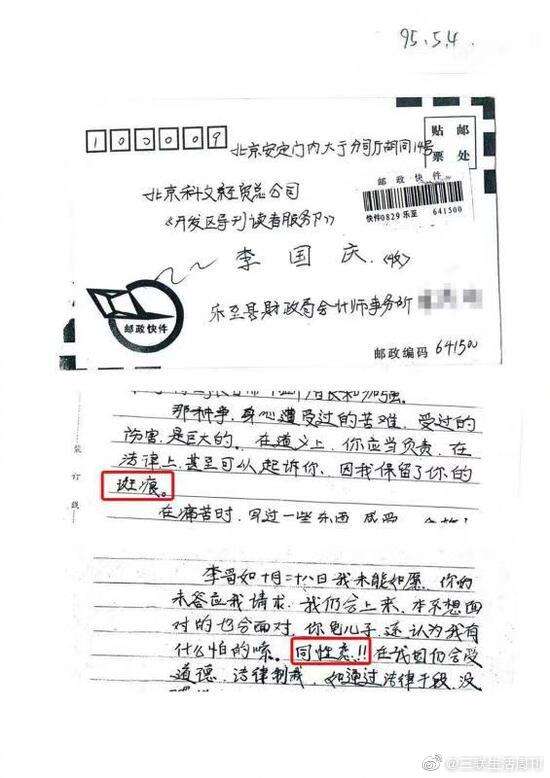 95.5.4
100009
贴 邮
票 处
北京安定门内大于分司厅胡同14号
邮 政 快 件
北京科文经贸总公司
快件0829 乐至 641500
《开发区导刊读者服务》
李 国 庆 (收)
邮政快件
乐至县财政局会计师事务所
邮政编码 641500
那种事,身心遭受过的苦难,受过的
伤害,是巨大的。在道义上,你应当负责,在
法律上,甚至可以起诉你,因我保留了你的
斑痕。
在痛苦时,写过一些东西
装 订 线
李晋如十月二十八日我未能如愿,你的
未答应我请求,我仍会上来,本不想面
对的也会面对,你龟儿子,还认为我有
什么怕的嗦。同性恋!!在我国仍会受
道德、法律制裁,如通过法律手段,没
@三联生活周刊